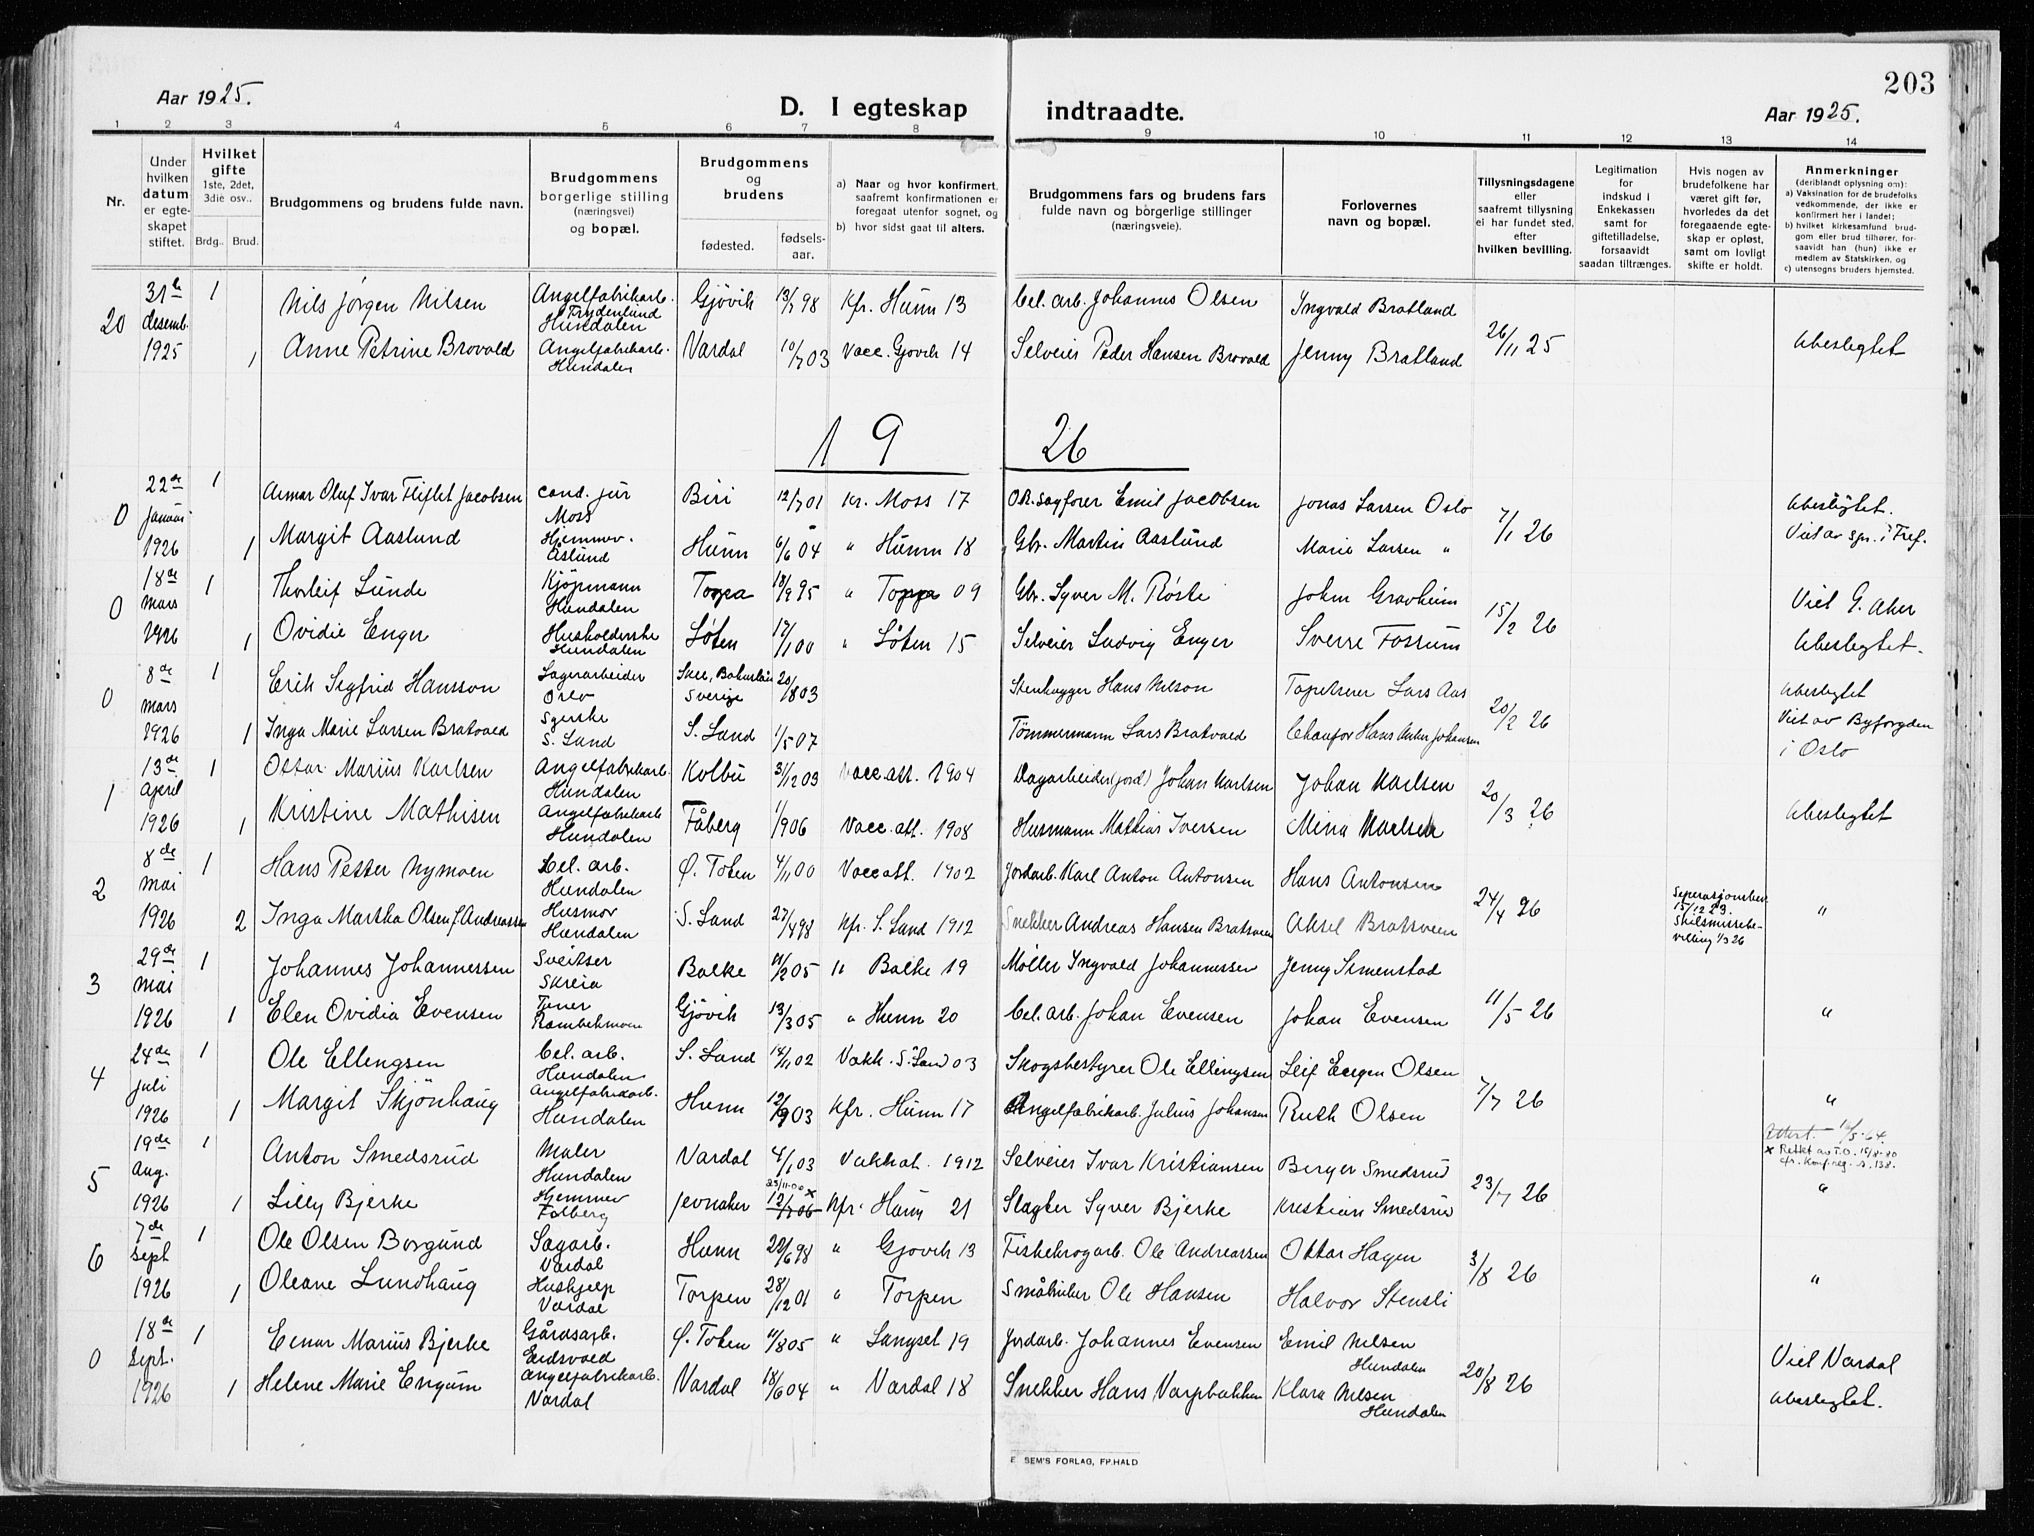 203
Aar 1925.
D. I egteskap indtraadte.
Aar 1925.
1 2 3 4 5 6 7 8 9 10 11 12 13 14
Nr.
Under hvilken datum er egteskapet stiftet.
Hvilket gifte 1ste, 2det, 3die osv..
Brdg.. Brud.
Brudgommens og brudens fulde navn.
Brudgommens borgerlige stilling (næringsvei) og bopæl.
Brudgommens og brudens
fødested.
fødselsaar.
a) Naar og hvor konfirmert, saafremt konfirmationen er foregaat utenfor sognet, og
b) hvor sidst gaat til alters.
Brudgommens fars og brudens fars fulde navn og borgerlige stillinger (næringsveie).
Forlovernes navn og bopæl.
Tillysningsdagene eller saafremt tillysning ei har fundet sted, efter hvilken bevilling.
Legitimation for indskud i Enkekassen samt for giftetilladelse, forsaavidt saadan tiltrænges.
Hvis nogen av brudefolkene har været gift før, hvorledes da det foregaaende egteskap er opløst, samt om lovligt skifte er holdt.
Anmerkninger (deriblandt oplysning om):
a) Vaksination for de brudefolks vedkommende, der ikke er konfirmert her i landet;
b) hvilket kirkesamfund brudgom eller brud tilhører, forsaavidt han (hun) ikke er medlem av Statskirken, og
c) utensogns bruders hjemsted.
20 31te desemb. 1925
1 Nils Jørgen Nilsen Angelfabrikarb. Frydenlund Hundalen Gjøvik 13/7 98 Kfr. Hunn 13 Cel. arb. Johannes Olsen Ingvald Bratland
1 Anne Petrine Brovold Angelfabrikarb. Hundalen Vardal 10/7 03 Vacc. Gjøvik 14 Selveier Peder Hansen Brovold Jenny Bratland 26/11 25 Ubeslegtet
19 26
0 22de Januar 1926
1 Arnar Oluf Ivar Fliflet Jacobsen cand. jur Moss Biri 12/7 01 Kr. Moss 17 O.R. sagfører Emil Jacobsen Jonas Larsen Oslo
1 Margit Aaslund Hjemmev. Åslund Hunn 6/6 04 " Hunn 18 Gbr. Martin Aaslund Marie Larsen " 7/1 26 Ubeslegtet. Viet av spr. i Fref.
0 18de Mars 1926
1 Thorleif Lunde Kjøpmann Hundalen Torpa 18/9 95 " Torpa 09 Gbr. Syver M. Røste John Gravheim
1 Ovidie Enger Husholderske Hundalen Løten 17/1 00 " Løten 15 Selveier Ludvig Enger Sverre Fossum 15/2 26 Viet G. Aker Ubeslegtet.
0 8de mars 1926
1 Erik Sigfrid Hansson Lagerarbeider Oslo Skee, Bohuslän Sverige 20/8 03 Stenhugger Hans Nilson Tapetserer Lars Aas
1 Inga Marie Larsen Bratvold Syerske S. Land S. Land 1/5 07 Tømmermann Lars Bratvold Chaufør Hans Johansen 20/2 26 Ubeslegtet Viet av Byfogden i Oslo
1 13de April 1926
1 Ottar Marius Karlsen Angelfabrikarb. Hundalen Kolbu 31/12 03 Vacc.att. 1904 Dagarbeider (jord) Johan Karlsen Johan Karlsen
1 Kristine Mathisen Angelfabrikarb Hundalen Fåberg 1/9 06 Vacc. att. 1908 Husmann Mathias Iversen Mina Karlsen 20/3 26 Ubeslegtet
2 8de mai 1926
1 Hans Petter Nymoen Cel. arb. Hundalen Ø. Toten 4/11 00 Vacc att. 1902 Jordarb. Karl Anton Antonsen Hans Antonsen
2 Inga Martha Olsen f. Andreassen Husmor Hundalen S. Land 27/4 98 Kfr. S. Land 1912 Snekker Andreas Hansen Bratsveen Aksel Bratsveen 24/4 26 Seperasjonsbev. 15/12 23. Skilsmissebevilling 1/3 26 "
3 29de mai 1926
1 Johannes Johannessen Sveitser Skreia Balke 11/2 05 " Balke 19 Møller Ingvald Johannessen Jenny Simenstad
1 Elen Ovidia Evensen Gjøvik 13/3 05 " Hunn 20 Cel. arb. Johan Evensen Johan Evensen 11/5 26 "
4 24de juli 1926
1 Ole Ellengsen Cel. arb. Hundalen S. Land 14/11 02 Vakk. S. Land 03 Skogbestyrer Ole Ellingsen Leif Eugen Olsen
1 Margit Skjönhaug Angelfabrikarb. Hundalen Hunn 12/9 03 Kfr. Hunn 17 Angelfabrikarb. Julius Johansen Ruth Olsen 7/7 26 "
5 19de Aug. 1926
1 Anton Smedsrud Maler Hundalen Vardal 4/1 03 Vakkat. 1912 Selveier Ivar Kristiansen Berger Smedsrud Attest. 12/5-64.
x Rettet av T.O. 15/8-80 cfr. Konf.reg. s. 138.
1 Lilly Bjerke Hjemmev Falberg Jevnaker 25/11-06 x 12/7 06 Kfr. Hunn 21 Slagter Syver Bjerke Kristian Smedsrud 23/7 26 "
6 7de sept 1926
1 Ole Olsen Borgund Sagarb. Vardal Hunn 22/6 98 " Gjøvik 13 Fiskekrogarb. Ole Andreassen Ottar Hagen
1 Oleane Lundhaug Hushjelp Vardal Torpen 28/12 01 " Torpen Småbruker Ole Hansen Halvor Stensli 3/8 26 "
0 18de Sept. 1926
1 Einar Marius Bjerke Gårdsarb. Eidsvold Ø. Toten 11/8 05 " Langset 19 Jordarb. Johannes Evensen Emil Nilsen Hundalen
1 Helene Marie Engum Angelfabrikarb. Vardal Vardal 18/6 04 " Vardal 18 Snekker Hans Varpbakken Klara Nilsen Hundalen 20/8 26 Viet Vardal Ubeslegtet.
E. SEM'S FORLAG, FR.HALD